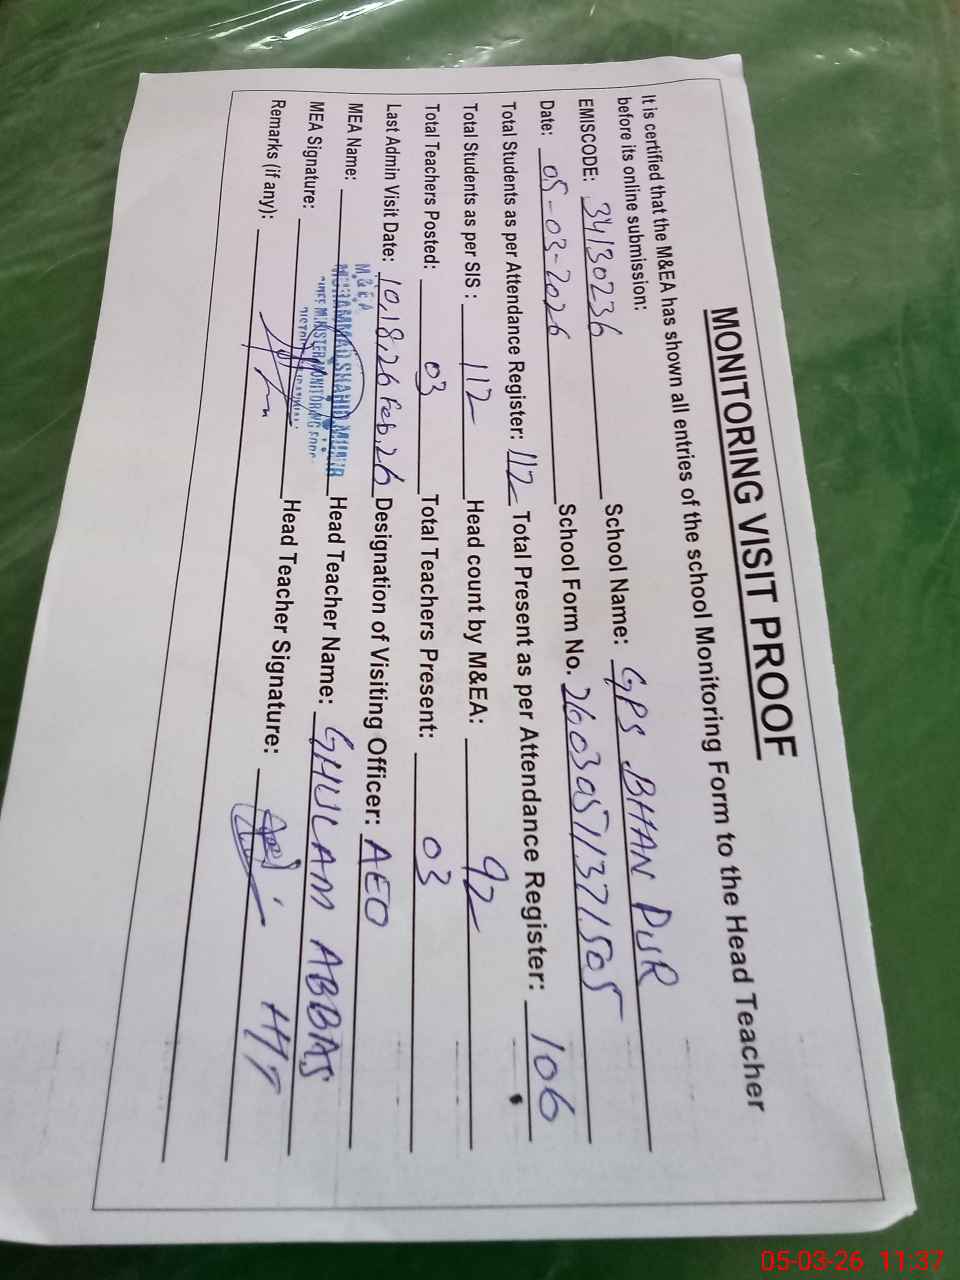 MONITORING VISIT PROOF
It is certified that the M&EA has shown all entries of the school Monitoring Form to the Head Teacher
before its online submission:
EMISCODE: 34130236 School Name: GPS BHAN PUR
Date: 05-03-2026 School Form No. 2603051371505
Total Students as per Attendance Register: 112 Total Present as per Attendance Register: 106
Total Students as per SIS : 112 Head count by M&EA: 92
Total Teachers Posted: 03 Total Teachers Present: 03
Last Admin Visit Date: 10,18,26 Feb,26 Designation of Visiting Officer: AEO
M&EA
MEA Name: MUHAMMAD SHAHID Head Teacher Name: GHULAM ABBAS
CHIEF MINISTER MONITORING FORCE
MEA Signature: Head Teacher Signature: HT
Remarks (if any):
05-03-26 11:37